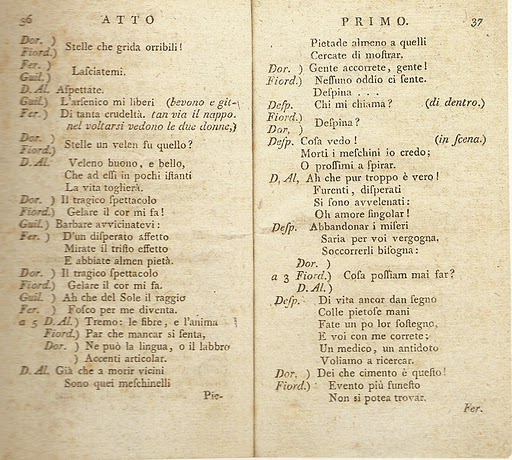 36 ATTO
Dor. )
Fiord.) Stelle che grida orribili!
Fer. )
Guil.) Lasciatemi.
D. Al. Aspettate.
Guil.) L'arsenico mi liberi (bevono e git-
Fer. ) Di tanta crudeltà. tan via il nappo.
nel voltarsi vedono le due donne,)
Dor. )
Fiord.) Stelle un velen fu quello?
D. Al. Veleno buono, e bello,
Che ad essi in pochi istanti
La vita toglierà.
Dor. ) Il tragico spettacolo
Fiord.) Gelare il cor mi fa!
Guil.) Barbare avvicinatevi:
Fer. ) D'un disperato affetto
Mirate il tristo effetto
E abbiate almen pietà.
Dor. ) Il tragico spettacolo
Fiord.) Gelare il cor mi fa.
Guil. ) Ah che del Sole il raggio
Fer. ) Fosco per me diventa.
a 5 D. Al.) Tremo: le fibre, e l'anima
Fiord.) Par che mancar si senta,
Dor. ) Ne può la lingua, o il labbro
) Accenti articolar.
D. Al. Già che a morir vicini
Sono quei meschinelli
Pie-
PRIMO. 37
Pietade almeno a quelli
Cercate di mostrar.
Dor. ) Gente accorrete, gente!
Fiord.) Nessuno oddio ci sente.
Despina . . .
Desp. Chi mi chiama? (di dentro.)
Fiord.)
Dor, ) Despina?
Desp. Cosa vedo! (in scena.)
Morti i meschini io credo;
O prossimi a spirar.
D, Al, Ah che pur troppo è vero!
Furenti, disperati
Si sono avvelenati:
Oh amore singolar!
Desp. Abbandonar i miseri
Saria per voi vergogna,
Soccorrerli bisogna:
Dor. )
a 3 Fiord.) Cosa possiam mai far?
D. Al. )
Desp. Di vita ancor dan segno
Colle pietose mani
Fate un po lor sostegno,
E voi con me correte;
Un medico, un antidoto
Voliamo a ricercar.
Dor. ) Dei che cimento è questo!
Fiord.) Evento più funesto
Non si potea trovar.
Fer.